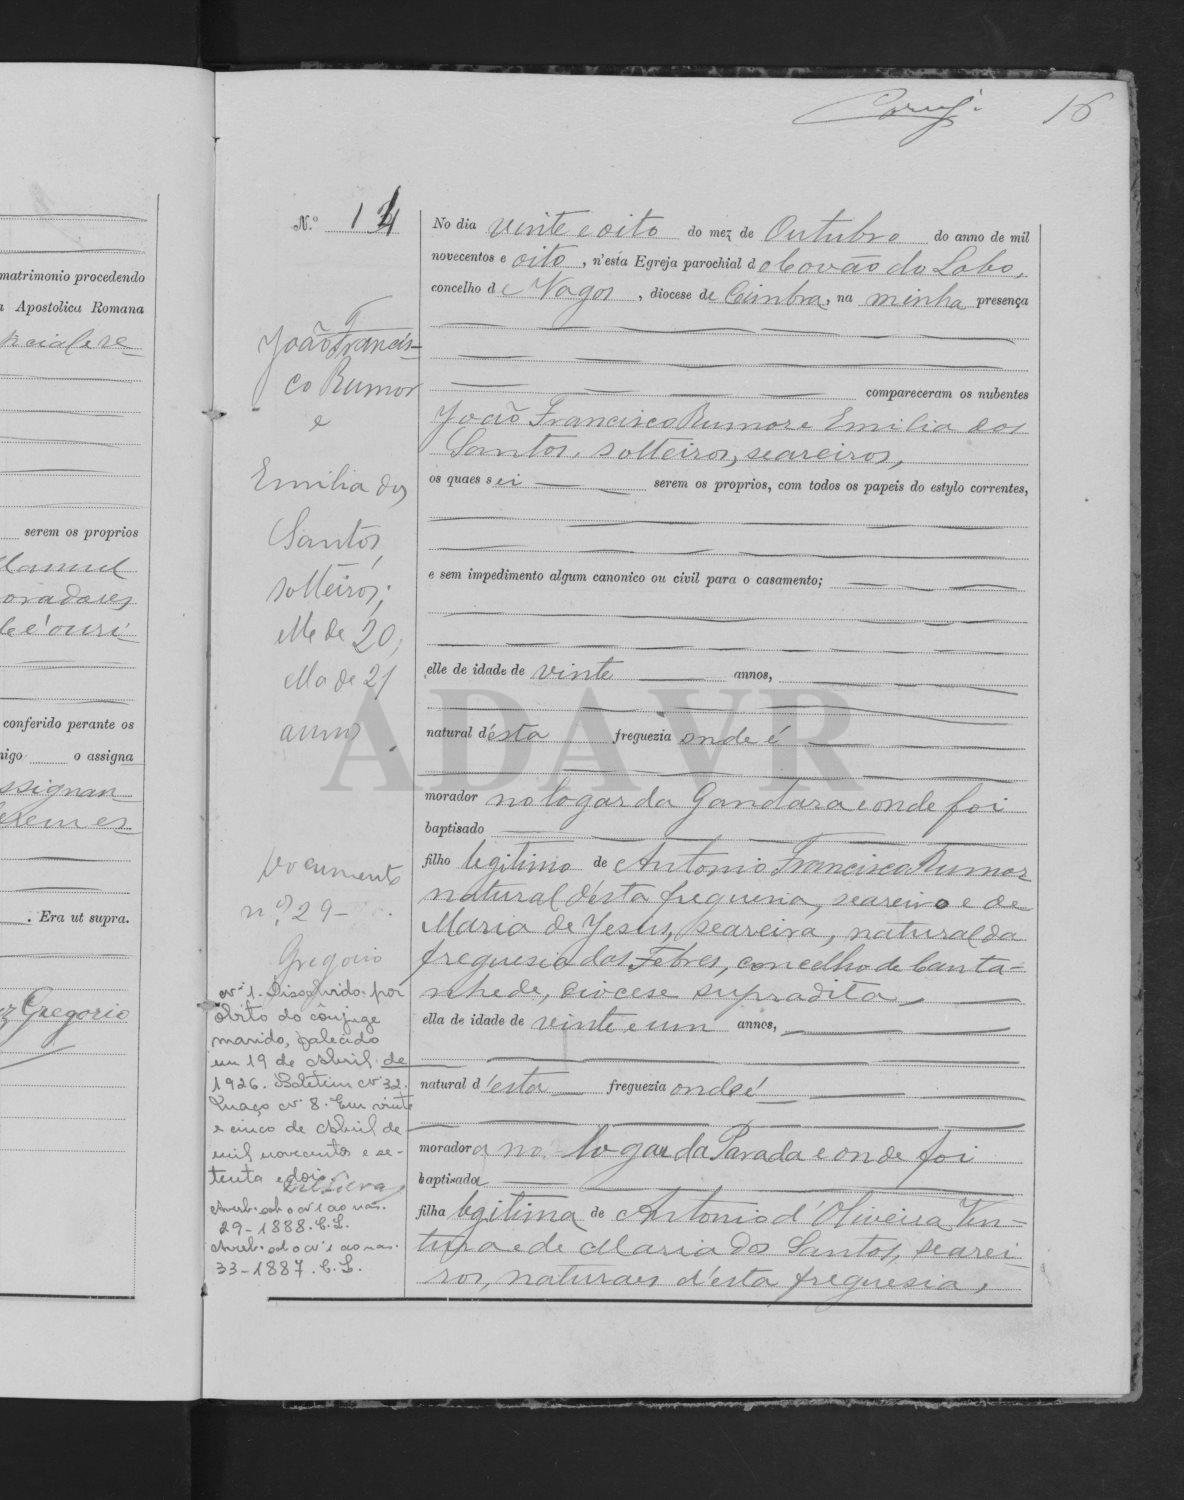 16
matrimonio procedendo
Apostolica Romana
serem os proprios
Manuel
oradores
conferido perante os
migo o assigna
ssignan-
. Era ut supra.
Gregorio
N.º 14
João Francis-
co Rumor
e
Emilia dos
Santos,
solteiros;
elle de 20,
ella de 21
annos.
Documento
n.º 29-
Gregorio
Nº 1. Dissolvido por
óbito do conjuge
marido, falecido
em 19 de Abril de
1926. Boletim Nº 32.
Maço Nº 8. Em vinte
e cinco de Abril de
mil novecentos e se-
tenta e dois.
Averb. sob o nº 1 ao nas.
29-1888. C.L.
Averb. sob o nº 1 ao nas.
33-1887. C.L.
No dia vinte e oito do mez de Outubro do anno de mil
novecentos e oito, n'esta Egreja parochial do Covão do Lobo,
concelho de Vagos, diocese de Coimbra, na minha presença
compareceram os nubentes
João Francisco Rumor e Emilia dos
Santos, solteiros, seareiros,
os quaes sei serem os proprios, com todos os papeis do estylo correntes,
e sem impedimento algum canonico ou civil para o casamento;
elle de idade de vinte annos,
natural d'ésta freguezia onde é
morador no logar da Gandara e onde foi
baptisado
filho legitimo de Antonio Francisco Rumor
natural d'ésta freguesia, seareiro e de
Maria de Jesus, seareira, natural da
freguesia das Febres, concelho de Canta-
nhede, diocese supradita,
ella de idade de vinte e um annos,
natural d'ésta freguezia onde é
moradora no logar da Parada e onde foi
baptisada
filha legitima de Antonio d'Oliveira Ven-
tura e de Maria dos Santos, searei-
ros, naturaes d'esta freguesia,
ADAVR